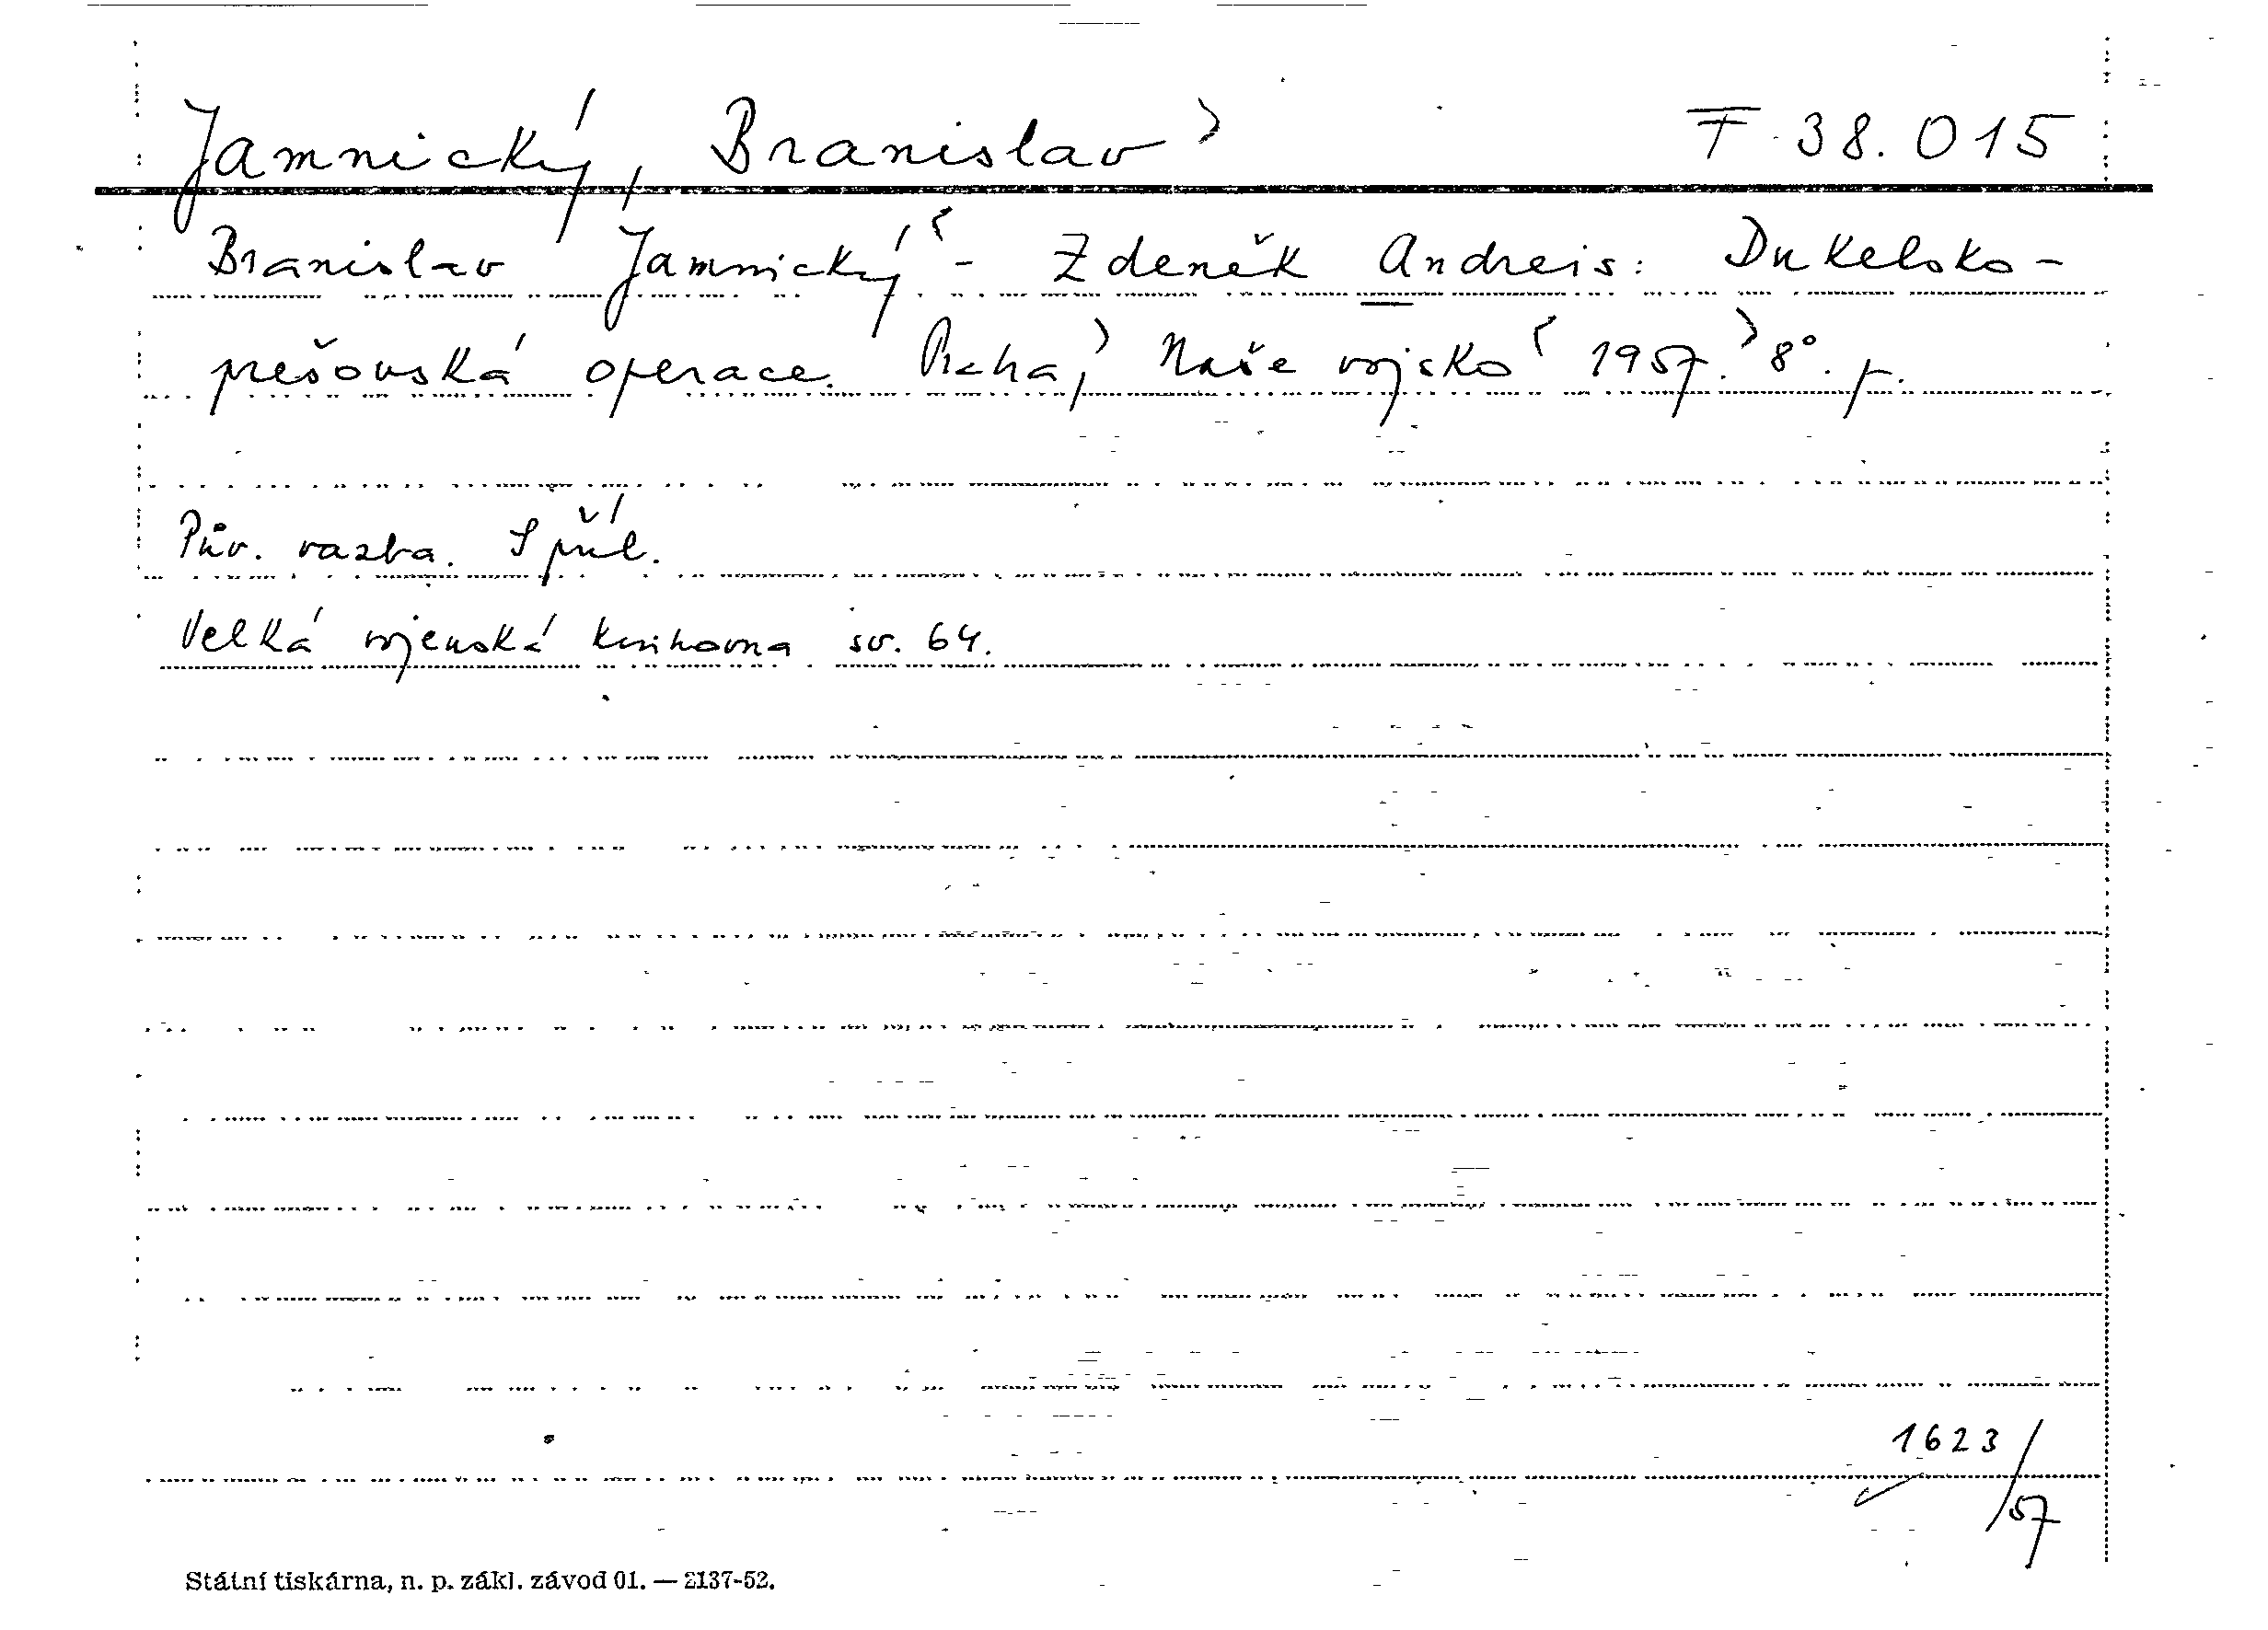 Jamnický, Branislav F 38.015
Branislav Jamnický - Zdeněk Andreis: Dukelsko-
prešovská operace. Praha, Naše vojsko 1957. 8°. p.
Pův. vazba. S příl.
Velká vojenská knihovna sv. 64.
1623/57
Státní tiskárna, n. p. zákl. závod 01. — 2137-52.